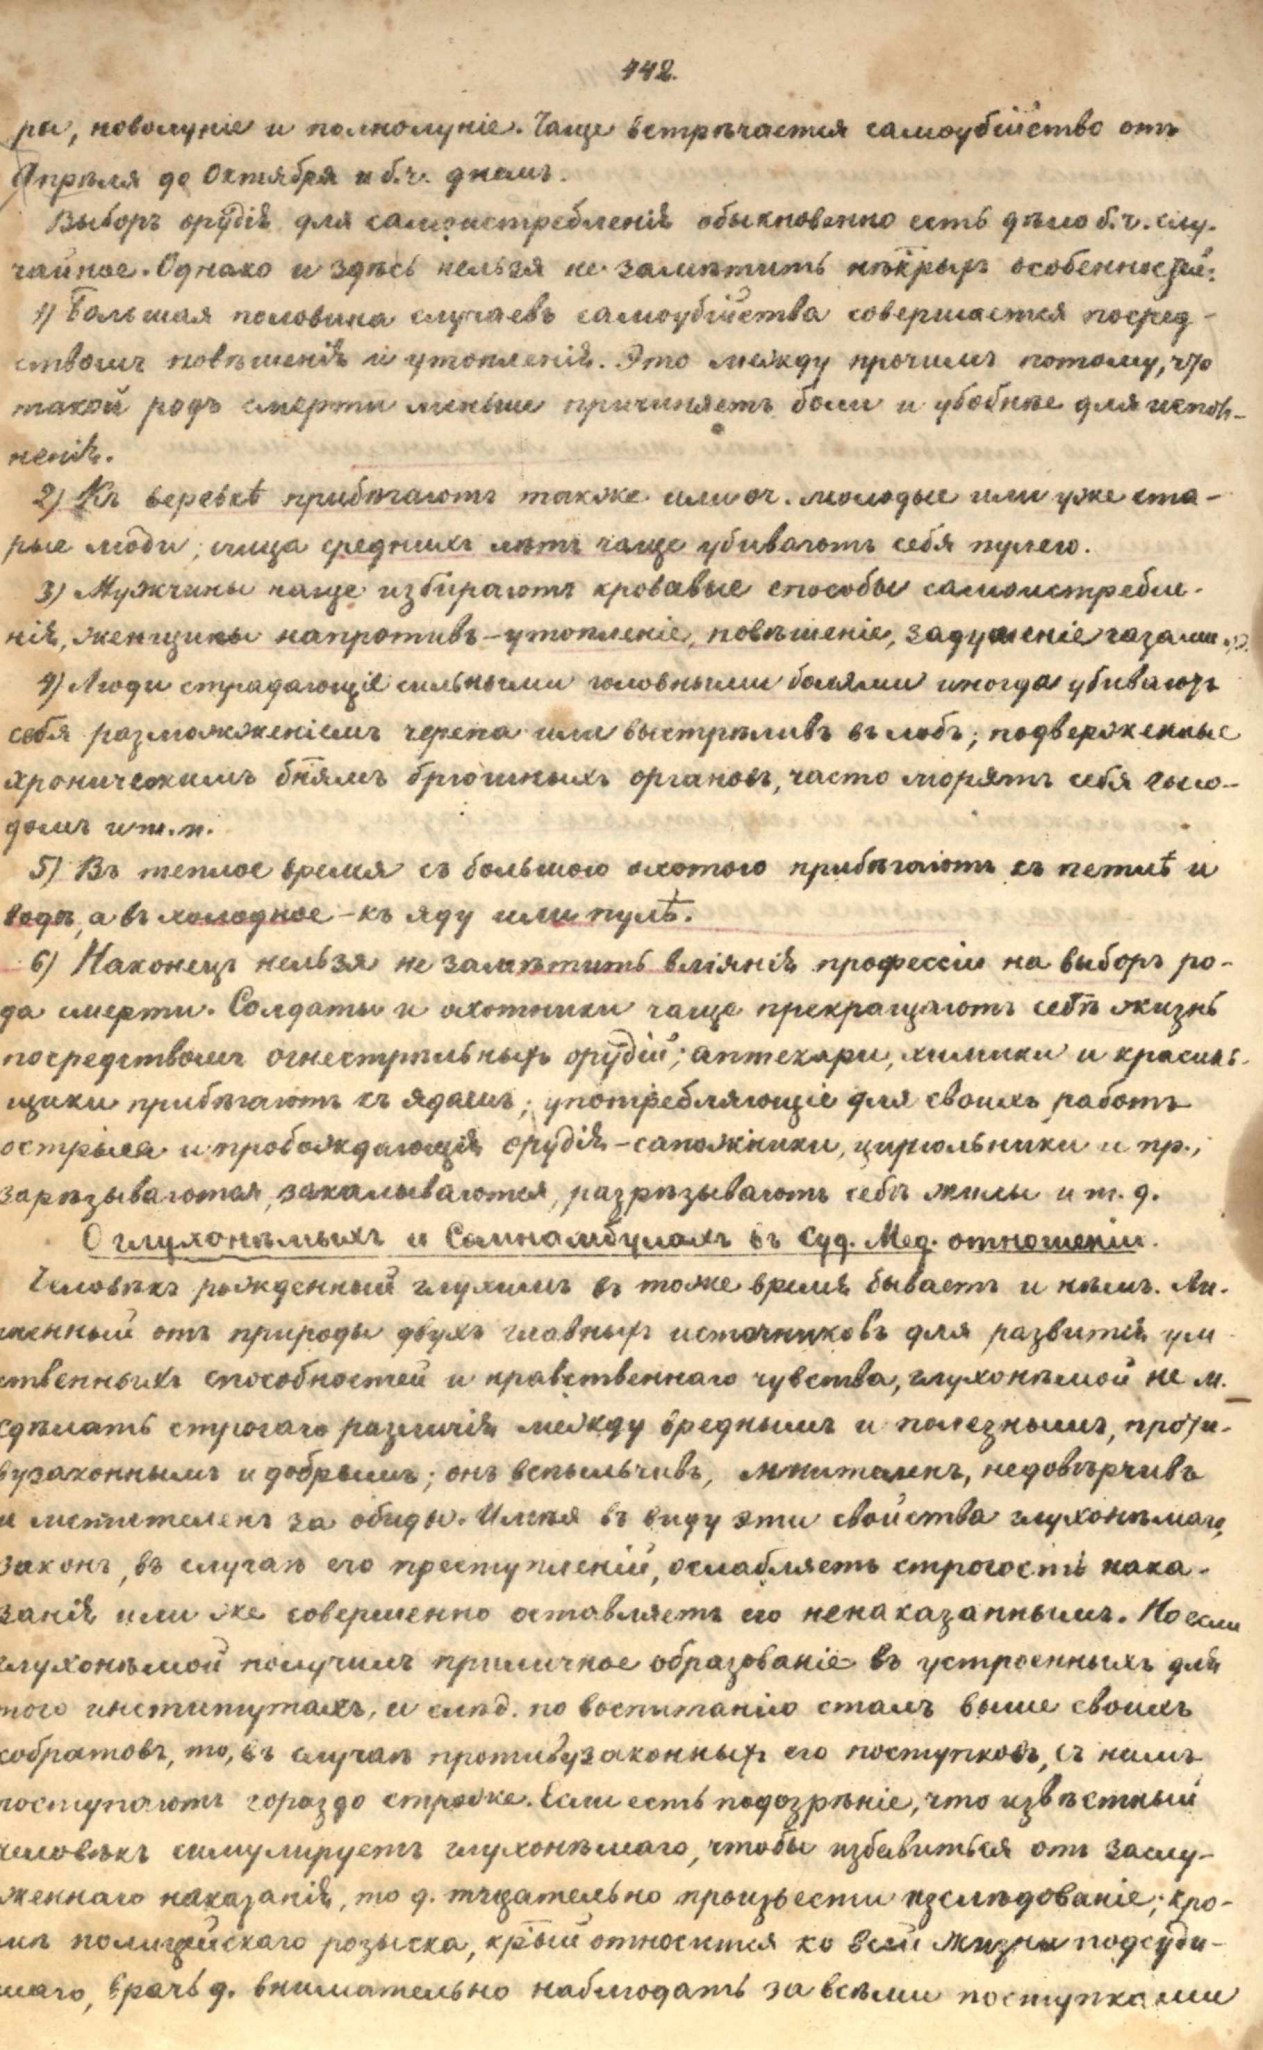 442.
ры, новолуніе и полнолуніе. Чаще встрѣчается самоубійство отъ
Апрѣля до Октября и б.ч. днемъ.
Выборъ орудія для самоистребленія обыкновенно есть дѣло б.ч. слу-
чайное. Однако и здѣсь нельзя не замѣтить нѣкрыхъ особенностей:
1) Большая половина случаевъ самоубійства совершается посред-
ствомъ повѣшенія и утопленія. Это между прочимъ потому, что
такой родъ смерти меньше причиняетъ боли и удобнѣе для испол-
ненія.
2) Къ веревкѣ прибѣгаютъ также или оч. молодые или уже ста-
рые люди; лица среднихъ лѣтъ чаще убиваютъ себя пулею.
3) Мужчины чаще избираютъ кровавые способы самоистребле-
нія, женщины напротивъ – утопленіе, повѣшеніе, задушеніе газами
4) Люди страдающіе сильными головными болями иногда убиваютъ
себя размозженіемъ черепа или выстрѣливъ въ лобъ; подверженные
хроническимъ бнямъ брюшныхъ органовъ, часто морятъ себя голо-
домъ и т.п.
5) Въ теплое время съ большою охотою прибѣгаютъ къ петлѣ и
водѣ, а въ холодное – къ яду или пулѣ.
6) Наконецъ нельзя не замѣтить вліянія профессіи на выборъ ро-
да смерти. Солдаты и охотники чаще прекращаютъ себѣ жизнь
посредствомъ огнестрѣльныхъ орудій; аптекари, химики и красиль-
щики прибѣгаютъ къ ядамъ; употребляющіе для своихъ работъ
острыя и пробождающія орудія – сапожники, цирюльники и пр.,
зарѣзываются, закалываются, разрѣзываютъ себѣ жилы и т. д.
О глухонѣмыхъ и Сомнамбулахъ въ Суд. Мед. отношеніи.
Человѣкъ рожденный глухимъ въ тоже время бываетъ и нѣмъ. Ли-
шенный отъ природы двухъ главныхъ источниковъ для развитія ум-
ственныхъ способностей и нравственнаго чувства, глухонѣмой не м.
сдѣлать строгаго различія между вреднымъ и полезнымъ, проти-
вузаконнымъ и добрымъ; онъ вспыльчивъ, мнителенъ, недовѣрчивъ
и мстителенъ за обиды. Имѣя въ виду эти свойства глухонѣмаго,
законъ, въ случаѣ его преступленій, ослабляетъ строгость нака-
занія или же совершенно оставляетъ его ненаказаннымъ. Но если
глухонѣмой получилъ приличное образованіе въ устроенныхъ для
того институтахъ, и слѣд. по воспитанію сталъ выше своихъ
собратовъ, то, въ случаѣ противузаконныхъ его поступковъ, съ нимъ
поступаютъ гораздо строже. Если есть подозрѣніе, что извѣстный
человѣкъ симулируетъ глухонѣмаго, чтобы избавиться отъ заслу-
женнаго наказанія, то д. тщательно произвести изслѣдованіе; кро-
мѣ полицейскаго розыска, крый относится ко всей жизни подсуди-
маго, врачъ д. внимательно наблюдать за всѣми поступками